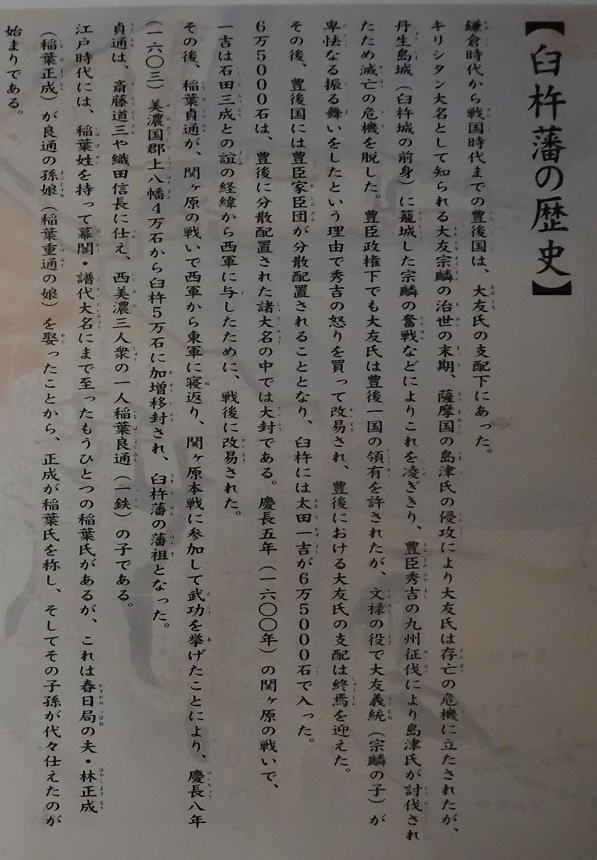 【臼杵藩の歴史】
鎌倉時代から戦国時代までの豊後国は、大友氏の支配下にあった。
キリシタン大名として知られる大友宗麟の治世の末期、薩摩国の島津氏の侵攻により大友氏は存亡の危機に立たされたが、
丹生島城（臼杵城の前身）に籠城した宗麟の奮戦などによりこれを凌ぎきり、豊臣秀吉の九州征伐により島津氏が討伐され
たため滅亡の危機を脱した。豊臣政権下でも大友氏は豊後一国の領有を許されたが、文禄の役で大友義統（宗麟の子）が
卑怯なる振る舞いをしたという理由で秀吉の怒りを買って改易され、豊後における大友氏の支配は終焉を迎えた。
その後、豊後国には豊臣家臣団が分散配置されることとなり、臼杵には太田一吉が6万5000石で入った。
6万5000石は、豊後に分散配置された諸大名の中では大封である。慶長五年（一六〇〇年）の関ヶ原の戦いで、
一吉は石田三成との誼の経緯から西軍に与したために、戦後に改易された。
その後、稲葉貞通が、関ヶ原の戦いで西軍から東軍に寝返り、関ヶ原本戦に参加して武功を挙げたことにより、慶長八年
（一六〇三）美濃国郡上八幡4万石から臼杵5万石に加増移封され、臼杵藩の藩祖となった。
貞通は、斎藤道三や織田信長に仕え、西美濃三人衆の一人稲葉良通（一鉄）の子である。
江戸時代には、稲葉姓を持って幕閣・譜代大名にまで至ったもうひとつの稲葉氏があるが、これは春日局の夫・林正成
（稲葉正成）が良通の孫娘（稲葉重通の娘）を娶ったことから、正成が稲葉氏を称し、そしてその子孫が代々仕えたのが
始まりである。